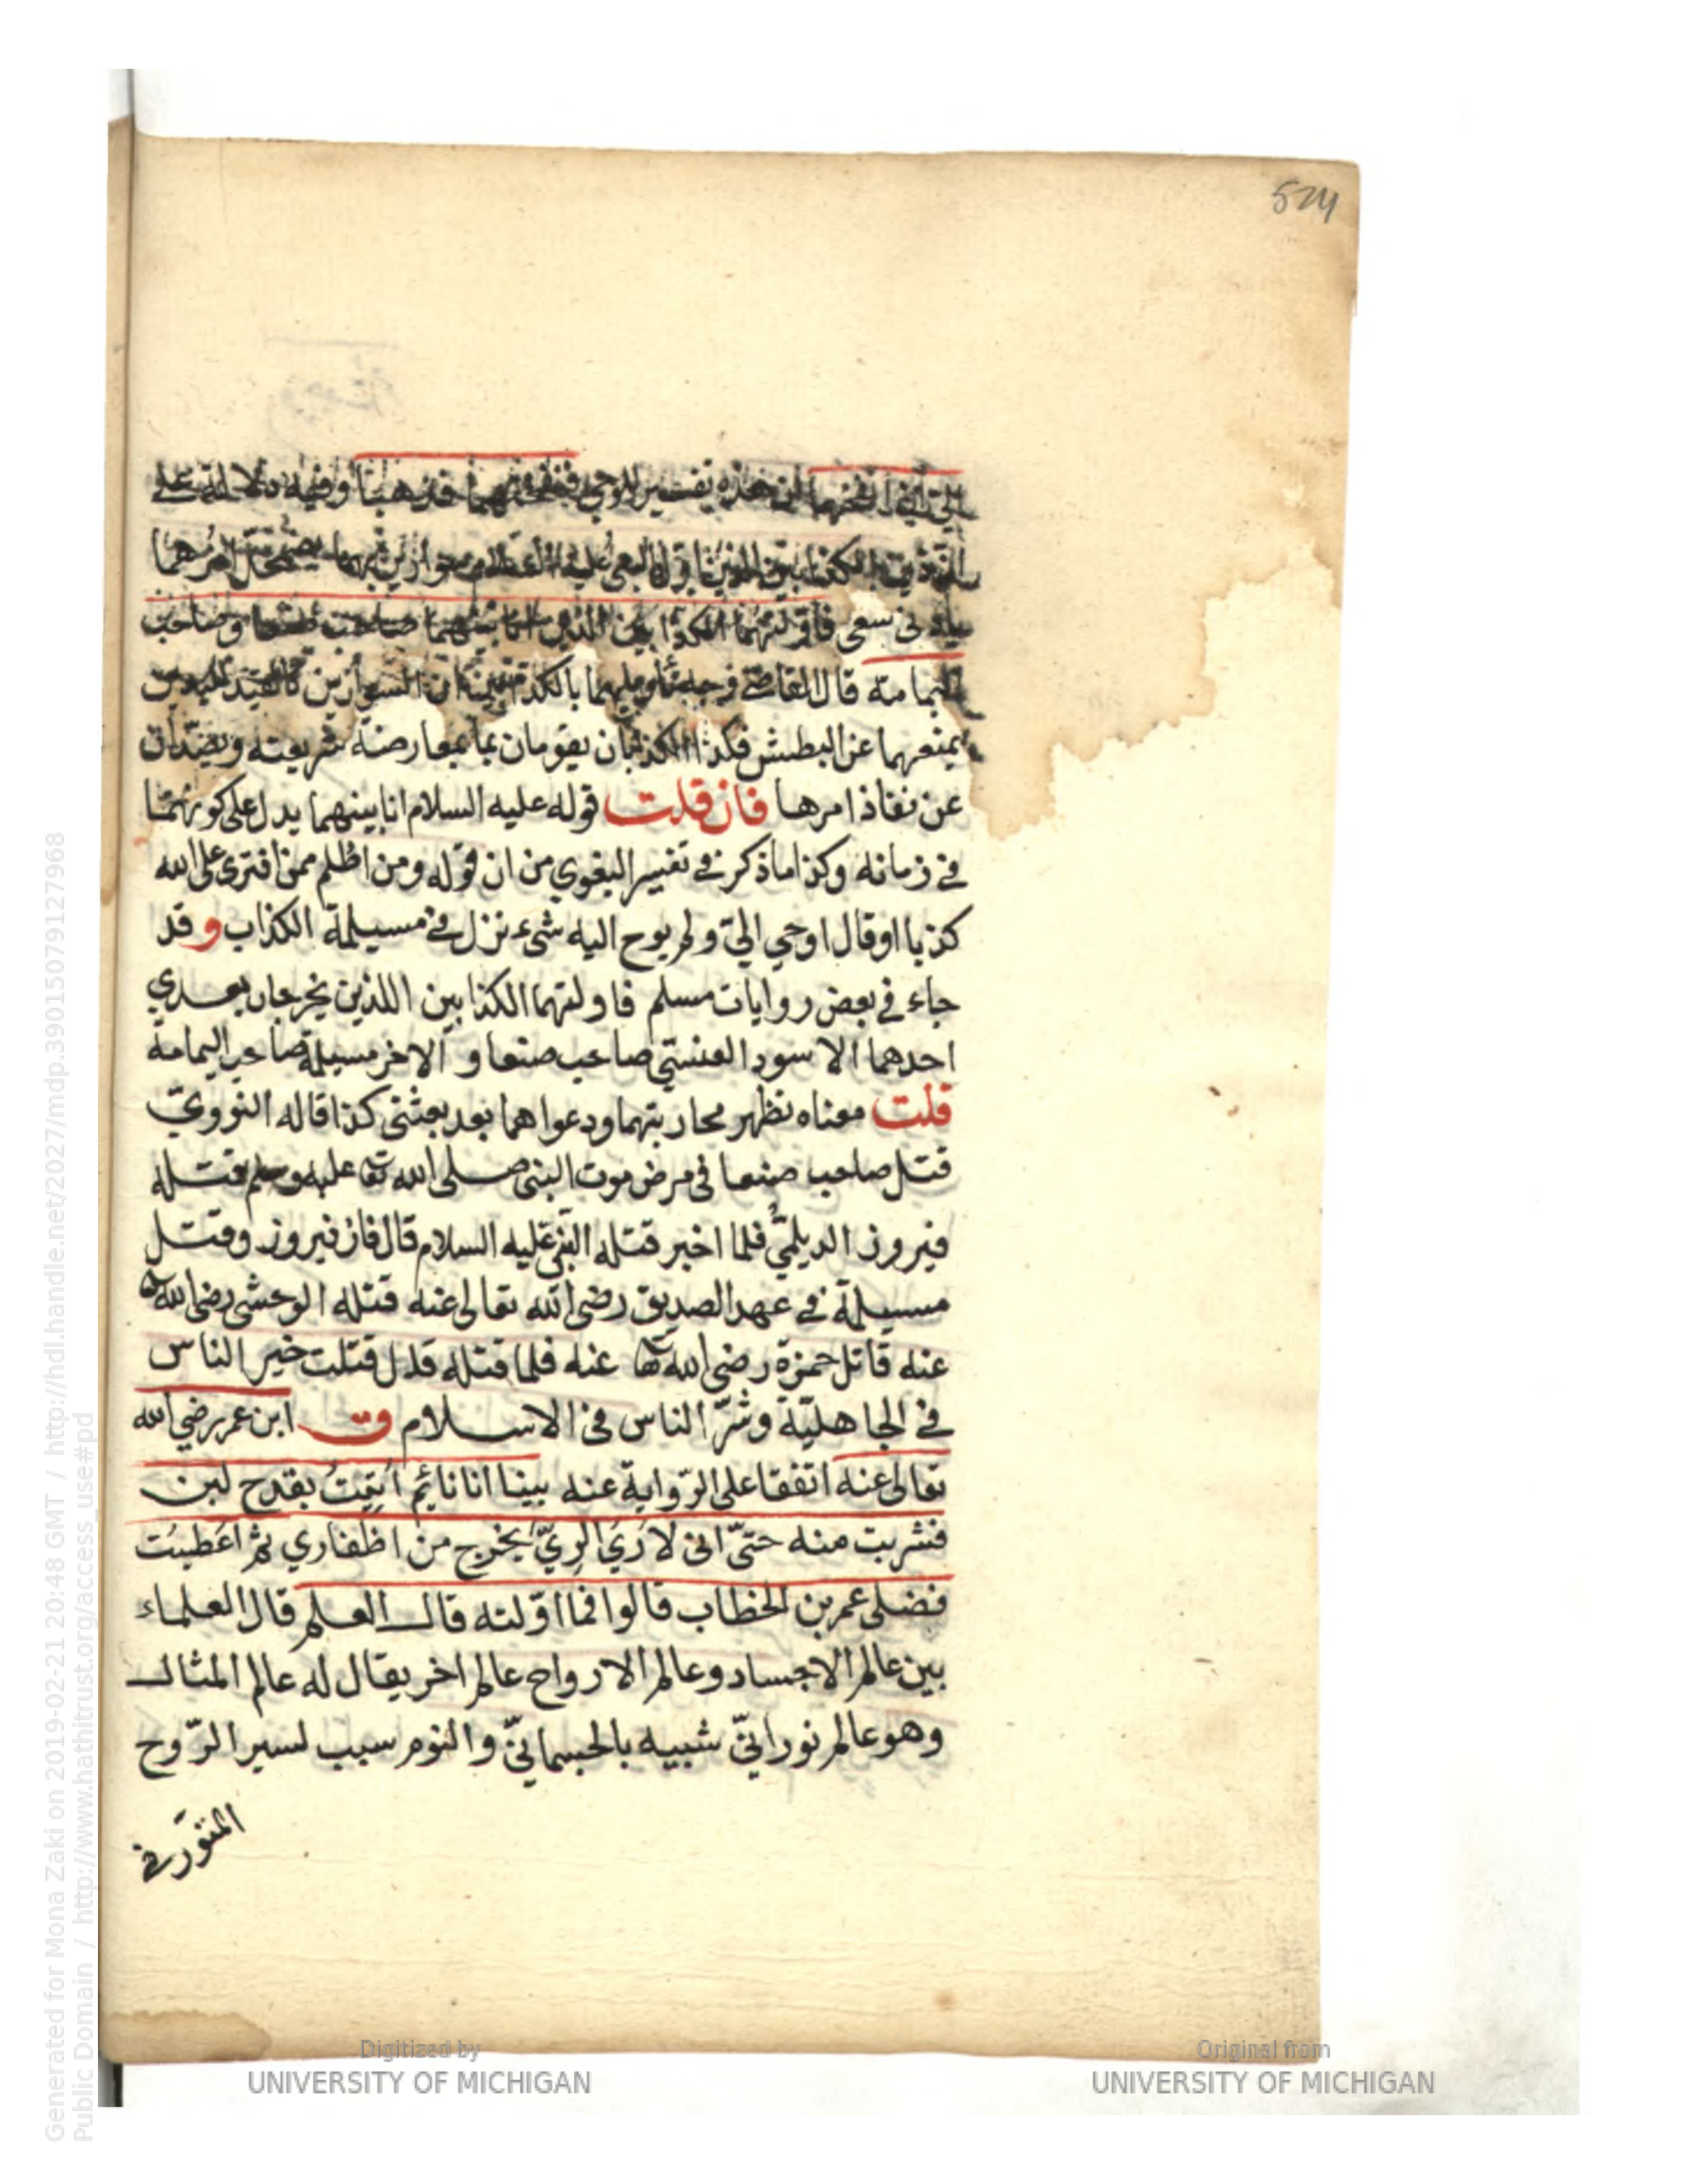 524
الي اني انفخهما ان هذه تفسير للوحي فنفختهما فذهبا وفيه دلالة على
فاولتهما الكذابين الذين انا بينهما صاحب صنعا وصاحب
اليمامة قال القاضي وجه تأويلهما بالكذابين ان السوارين كالقيد لليدين
يمنعهما عن البطش فكذا الكذابان يقومان بمعارضة شريعته ويصدان
عن نفاذ امرها فان قلت قوله عليه السلام انا بينهما يدل على كونهما
في زمانه وكذا ما ذكر في تفسير البغوي من ان قوله ومن اظلم ممن افترى على الله
كذبا او قال اوحي اليّ ولم يوح اليه شيء نزل في مسيلمة الكذاب وقد
جاء في بعض روايات مسلم فاولتهما الكذابين اللذين يخرجان بعدي
احدهما الاسود العنسي صاحب صنعا والاخر مسيلمة صاحب اليمامة
قلت معناه تظهر محاربتهما ودعواهما بعد بعثتي كذا قاله النوويّ
قتل صاحب صنعا في مرض موت النبي صلى الله تعا عليه وسلم قتله
فيروز الديلميّ فلما اخبر قتله النبي عليه السلام قال فاز فيروز وقتل
مسيلمة في عهد الصديق رضي الله تعالى عنه قتله الوحشي رضي الله تعا
عنه قاتل حمزة رضي الله تعا عنه فلما قتله قال قتلت خير الناس
في الجاهليّة وشرّ الناس في الاسلام ق ابن عمر رضي الله
تعالى عنه اتفقا على الرّواية عنه بينا انا نائم اُتِيتُ بقدح لبن
فشربت منه حتّى اني لاَرَي الرِيّ يخرج من اظفاري ثم اعطيت
فضلي عمر بن الخطاب قالوا فما اوّلته قال العلم قال العلماء
بين عالم الاجساد وعالم الارواح عالم اخر يقال له عالم المثال
وهو عالم نورانيّ شبيه بالجسمانيّ والنوم سبب لسير الرّوح
المنوّر في
Generated for Mona Zaki on 2019-02-21 20:48 GMT / http://hdl.handle.net/2027/mdp.39015079127968
Public Domain / http://www.hathitrust.org/access_use#pd
Digitized by
UNIVERSITY OF MICHIGAN
Original from
UNIVERSITY OF MICHIGAN